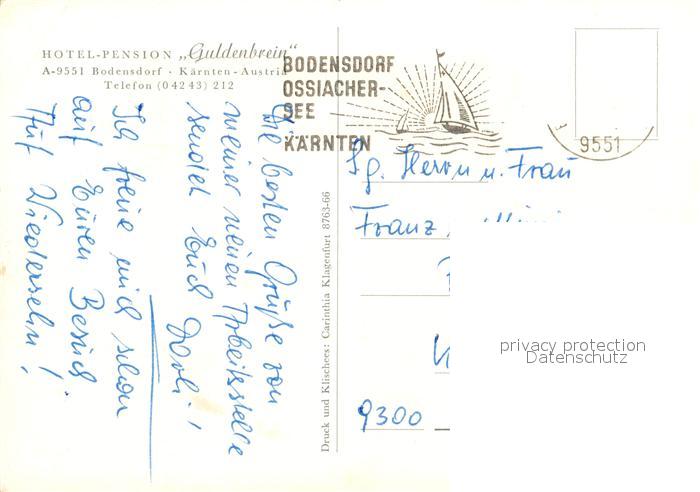 HOTEL-PENSION „Guldenbrein"
A-9551 Bodensdorf · Kärnten - Austria
Telefon (04243) 212
BODENSDORF
OSSIACHER-
SEE
KÄRNTEN
9551
Die besten Grüße von
meiner neuen Arbeitsstelle
sendet Euch Dorli!
Ich freue mich schon
auf Euren Besuch.
Auf Wiedersehn!
Druck und Klischees: Carinthia Klagenfurt 8763-66
Sg. Herrn u. Frau
Franz
9300
privacy protection
Datenschutz